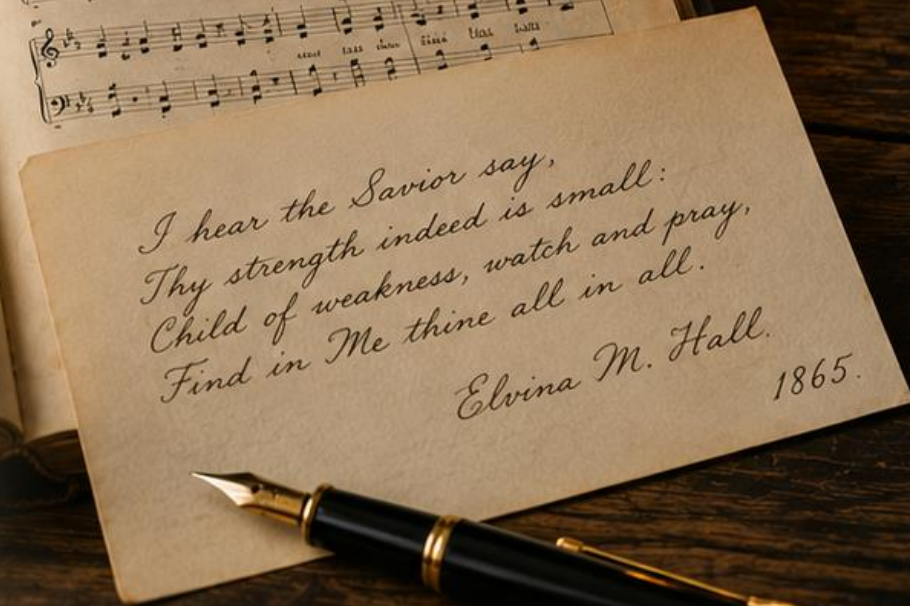 I hear the Savior say,
Thy strength indeed is small:
Child of weakness, watch and pray,
Find in Me thine all in all.
Elvina M. Hall.
1865.